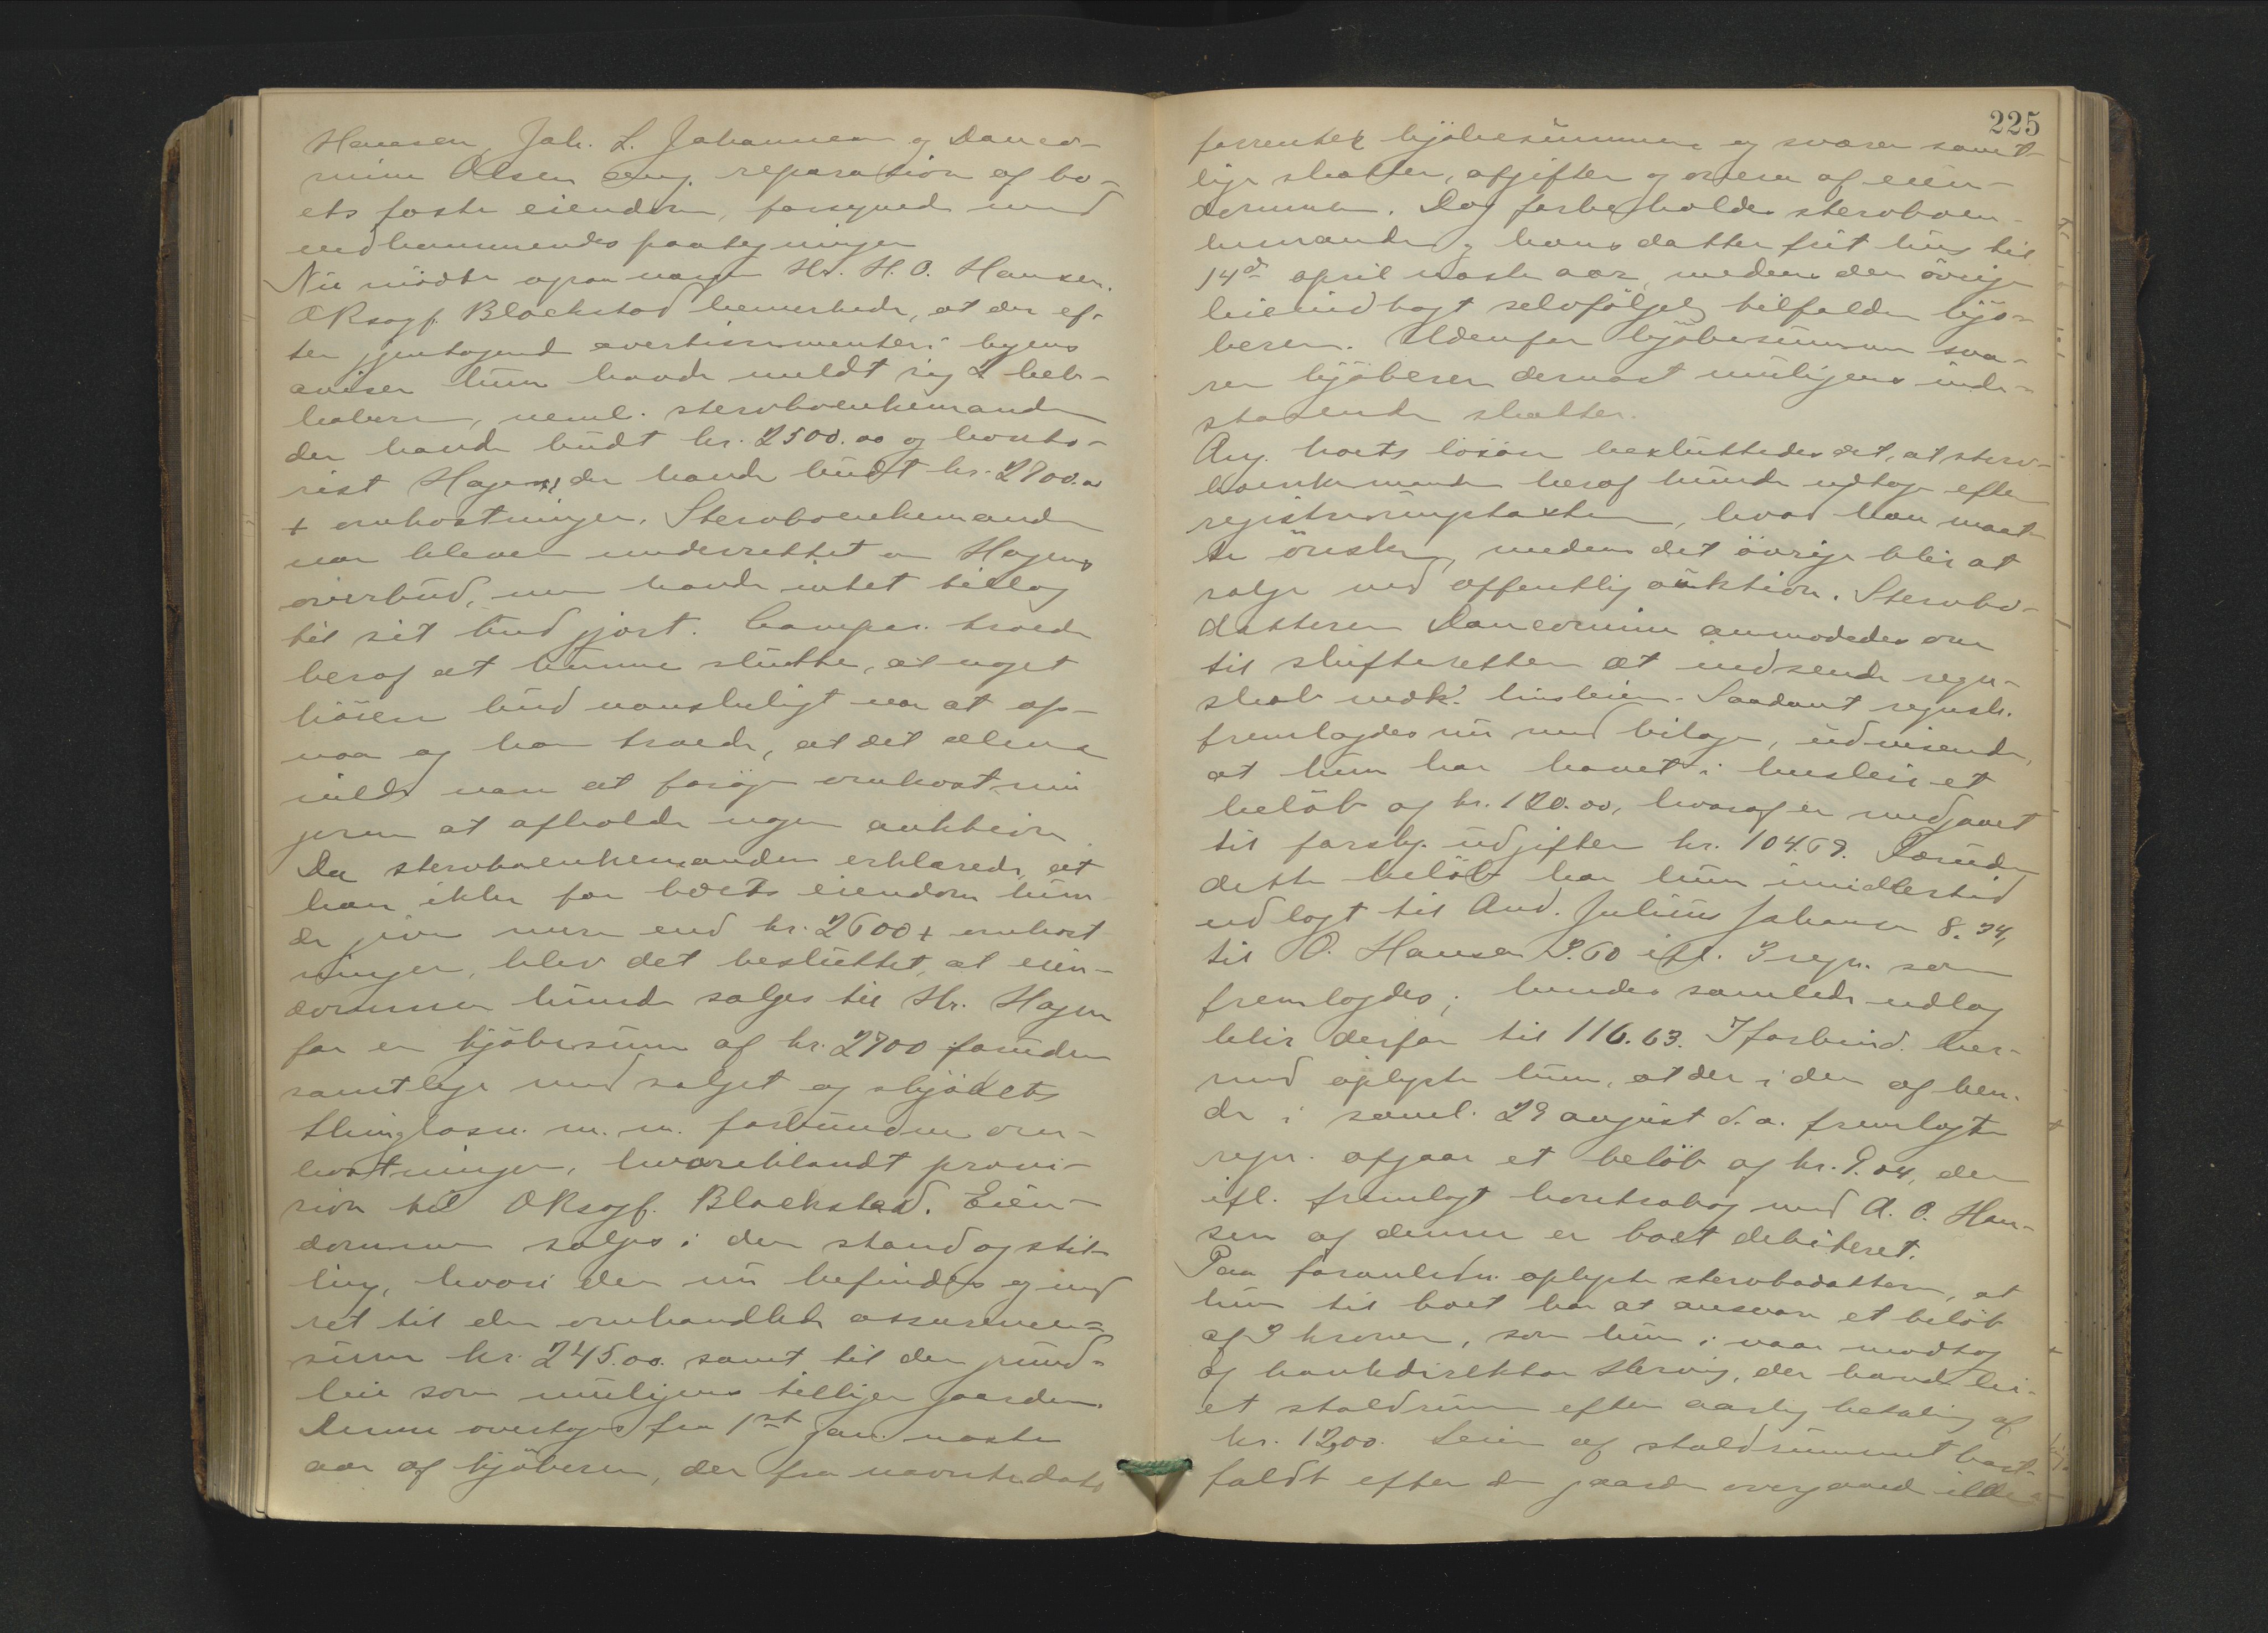 Hansen, Joh. L. Johannesen og Daneor-
mine Olsen ang. reparation af bo-
ets faste eiendom, forsyned med
vedkommendes paategninger
Nu mödte ogsaa værge Hr. H. O. Hansen.
ORsagf. Blackstad bemerkede, at der ef-
ter gjentagend avertissementer i byens
aviser kun havde meldt sig 2 lieb-
habere, neml. stervboenkemanden
der havde budt kr. 2500.00 og konto-
rist Hagen, der havde budt kr. 2700.00
+ omkostninger. Stervboenkemanden
var bleven underrettet om Hagens
overbud, men havde intet tillæg
til sit bud gjort. Compar. troede
heraf at kunne slutte, at noget
höiere bud vanskeligt var at op-
naa og han troede, at det alene
vilde være at foröge omkostnin
gerne at afholde nogen auktion
Da stervboenkemanden erklærede, at
han ikke for boets eiendom kun-
de give mere end kr. 2600 + omkost
ninger, blev det besluttet, at eien-
dommen kunde sælges til Hr. Hagen
for en kjöbesum af kr. 2700 foruden
samtlige med salget og skjödets
thinglæsn. m. m. forbundne om-
kostninger, hvoriblandt provi-
sion til ORsagf. Blackstad. Eien-
dommen sælges i den stand og stil-
ling, hvori den nu befindes og med
ret til den omhandlede assurance-
sum kr. 245.00. samt til den grund-
leie som muligens tilligger gaarden.
Denne overtages fra 1st jan. næste
aar af kjöberen, der fra nævnte dato
225
forrenter kjöbesummen og svarer samt-
lige skatter, afgifter og onera af eien-
dommen. Dog forbeholdes stervboen-
kemanden og hans datter frit hus til
14de april næste aar, medens den övrige
leieindtægt selvfölgelig tilfalder kjö-
beren. Udenfor kjöbesummen sva-
rer kjöberen dernæst muligens inde-
staaende skatter.
Ang. boets lösöre besluttedes det, at sterv-
boenkemanden heraf kunde udtage efter
registreringstaxten, hvad han maat-
te önske, medens det övrige blir at
sælge ved offentlig auktion. Stervbo-
datteren Daneormine anmodedes om
til skifteretten at indsende regn-
skab vedk. husleien. Saadant regnsk.
fremlagdes nu med bilage, udvisende,
at hun har hævet i husleie et
belöb af kr. 120.00, hvoraf er medgaaet
til forskj. udgifter kr. 104.69. Foruden
dette belöb har hun imidlertid
udlagt til And. Julius Johansen 8.34,
til O. Hansen 3.60 ifl. 3 regn. som
fremlagdes; hendes samlede udlæg
blir derfor til 116.63. I forbind. her-
med oplyste hun, at der i den af hen-
de i saml. 29 august d. a. fremlagte
regn. afgaar et belöb af kr. 9.04, der
ifl. fremlagt kontrabog med A. O. Han-
sen af denne er boet debiteret.
Paa foranledn. oplyste stervbodatteren, at
hun til boet har at ansvare et belöb
af 3 kroner, som hun i vaar modtog
af bankdirektör Hervig, der havde lei-
et staldrum efter aarlig betaling af
kr. 12.00. Leien af staldrummet bort-
faldt efter at gaarden overgaaed ilde-